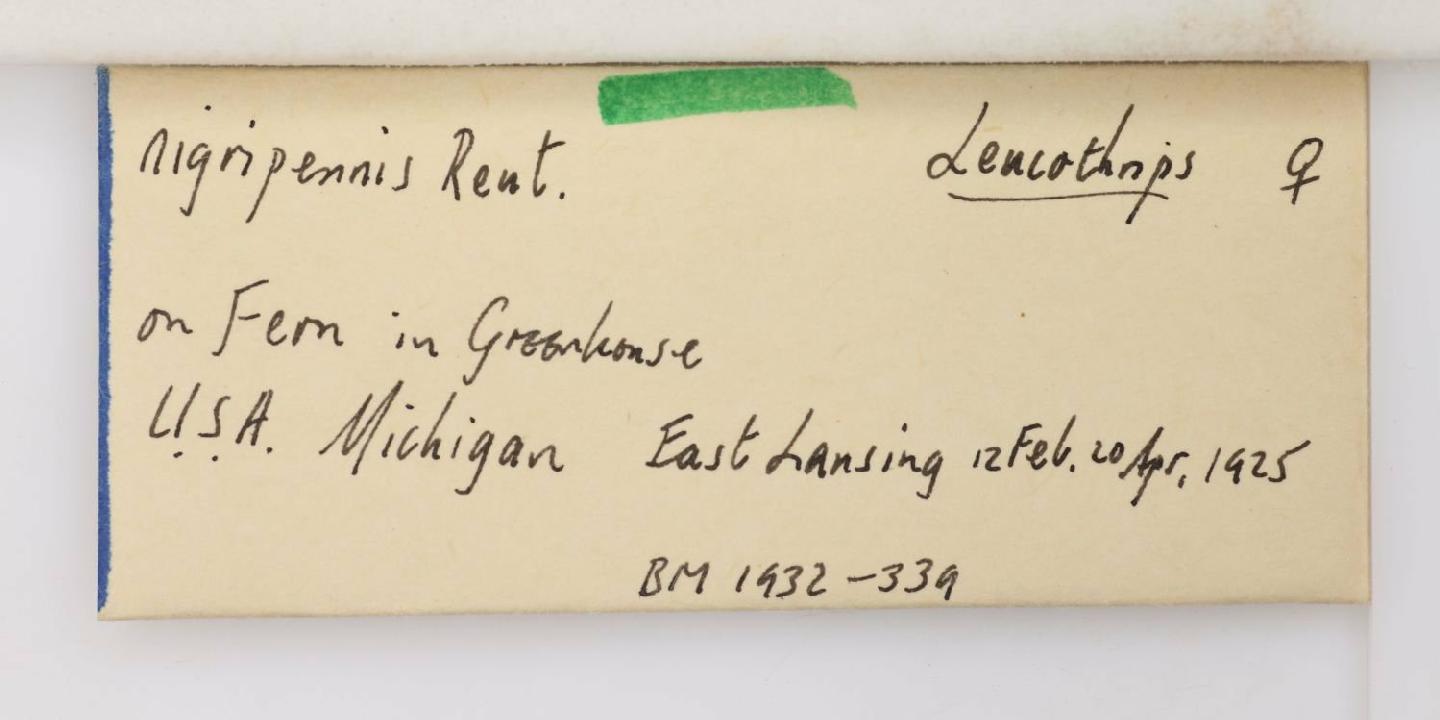 nigripennis Reut. Leucothrips ♀
on Fern in Greenhouse
U.S.A. Michigan East Lansing 12 Feb. 20 Apr. 1925
BM 1932-339